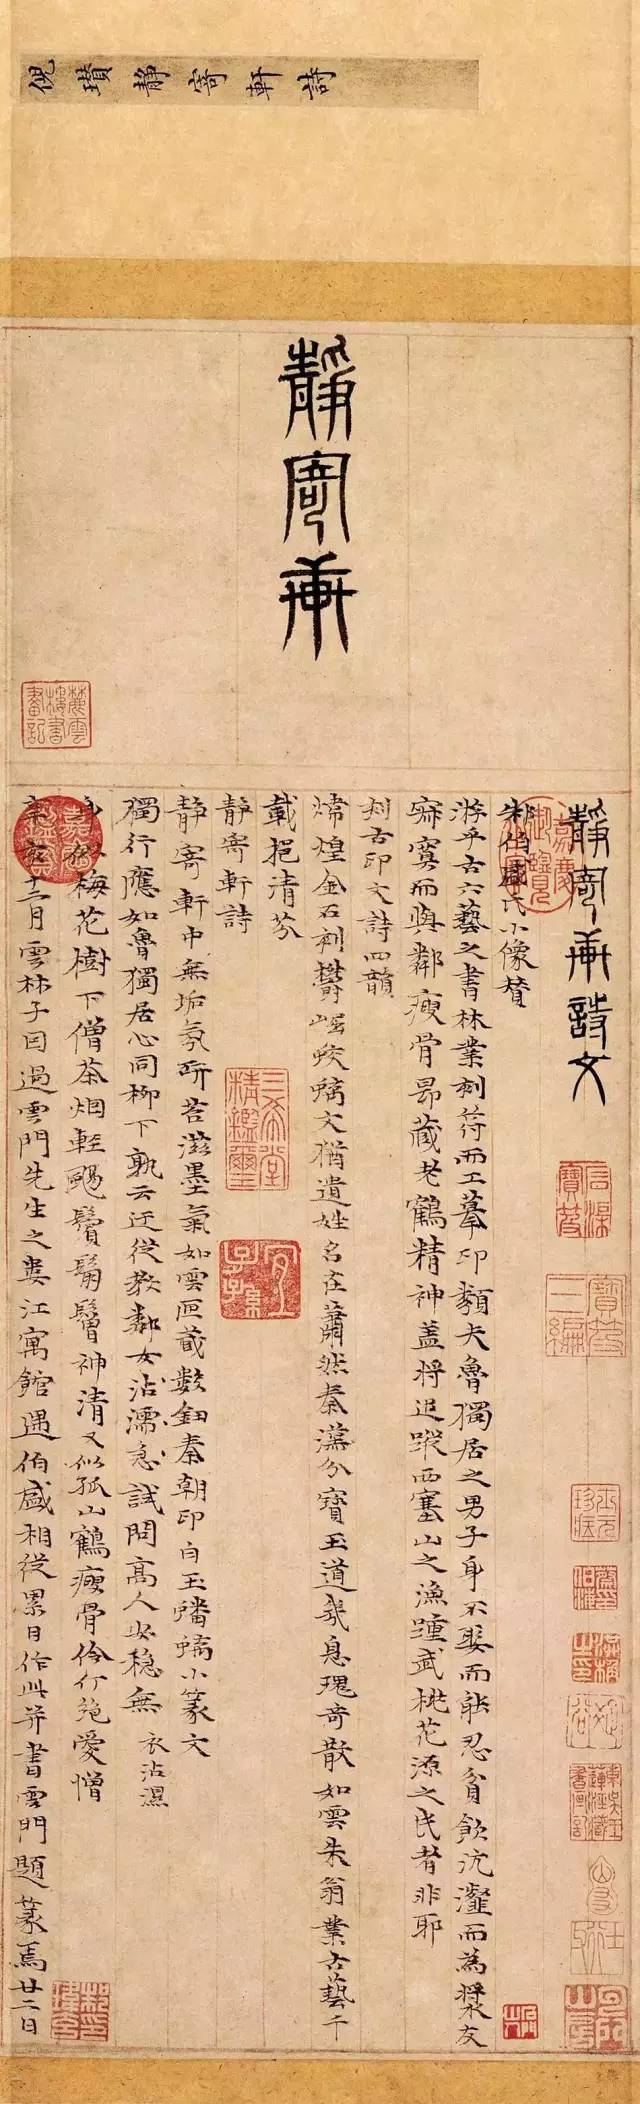 倪瓚靜寄軒詩
靜寄軒
靜寄軒詩文
朱伯盛氏小像贊
游乎古六藝之書林業刻符而工摹印類夫魯獨居之男子身不娶而能忍貧飲沆瀣而為漿友
寂寞而與鄰瘦骨昂藏老鶴精神蓋將追蹤西塞山之漁踵武桃花源之民者非耶
刻古印文詩四韻
煒煌金石刻欝崛蛟螭文猶遺姓名在蕭然秦漢分寶玉道幾息瑰奇散如雲朱翁業古藝千
載挹清芬
靜寄軒詩
靜寄軒中無垢氛研苔滋墨氣如雲匣藏數鈕秦朝印白玉蟠螭小篆文
獨行應如魯獨居心同柳下孰云迂從教鄰女沾濡急試問高人安穩無 衣沾濕
梅花樹下僧茶烟輕颺鬢鬅鬙神清又似孤山鶴瘦骨伶仃絕愛憎
十二月雲林子因過雲門先生之婁江寓館遇伯盛相從累日作此并書雲門題篆焉廿二日
麓雲樓書畫記
嘉慶御覽之寶
三希堂精鑑璽
宜子孫
石渠寶笈
寶笈三編